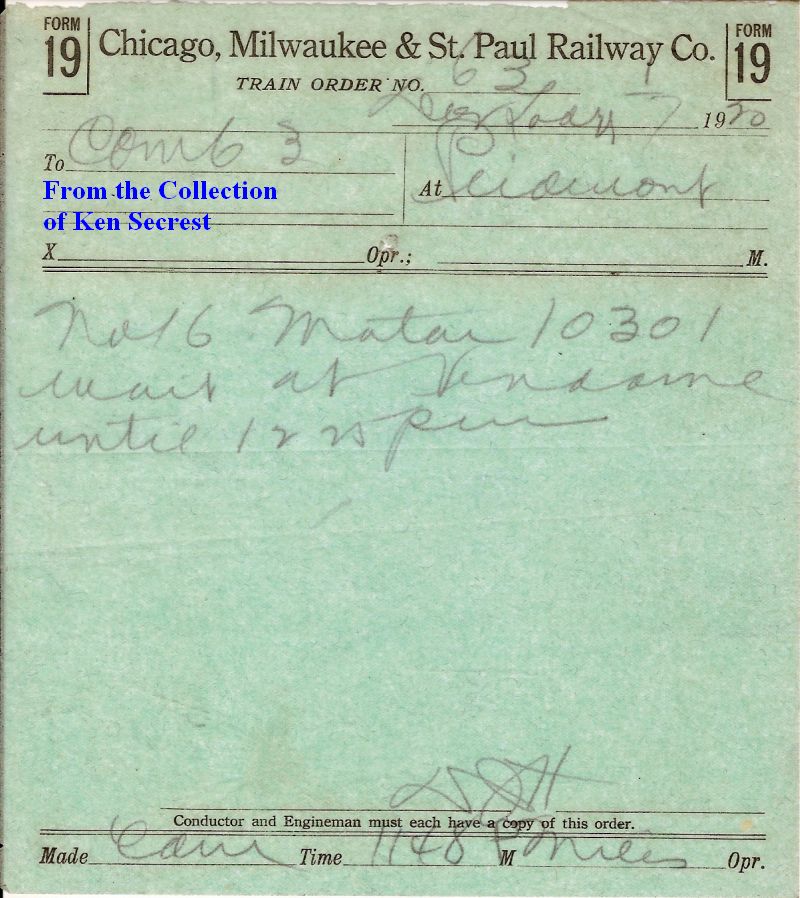 FORM 19 Chicago, Milwaukee & St. Paul Railway Co. FORM 19
TRAIN ORDER NO. 63
7 1920
To Com 6 3 At Piedmont
From the Collection
of Ken Secrest
X Opr.; M.
No 16 Motor 10301
wait at Vendome
until 12 25 pm
Conductor and Engineman must each have a copy of this order.
Made Com Time 1148 M Opr.